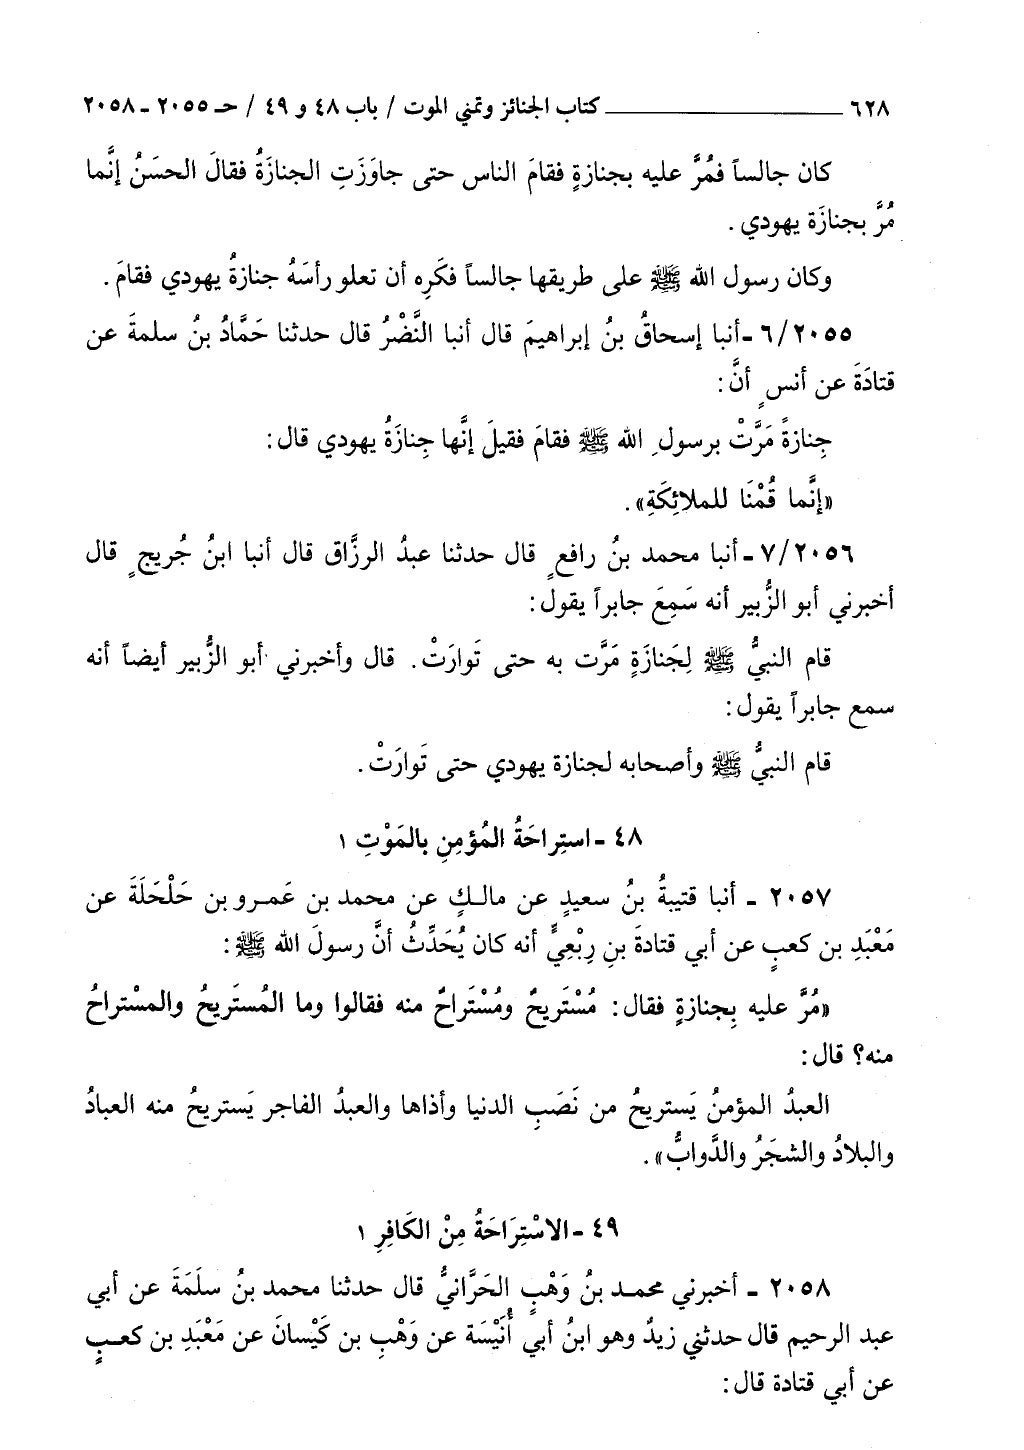 ٦٢٨ ــــــــــــــــــــ كتاب الجنائز وتمني الموت / باب ٤٨ و ٤٩ / حـ ٢٠٥٥ ـ ٢٠٥٨
كان جالساً فمُرَّ عليه بجنازةٍ فقامَ الناس حتى جاوَزَتِ الجنازَةُ فقالَ الحسَنُ إنَّما
مُرَّ بجنازَة يهودي .
وكان رسول الله ﷺ على طريقها جالساً فكَرِه أن تعلو رأسَهُ جنازةُ يهودي فقامَ .
٦/٢٠٥٥ ـ أنبا إسحاقُ بنُ إبراهيمَ قال أنبا النَّضْرُ قال حدثنا حَمَّادُ بنُ سلمةَ عن
قتادَةَ عن أنسٍ أنَّ :
جِنازةً مَرَّتْ برسولِ الله ﷺ فقامَ فقيلَ إنَّها جِنازَةُ يهودي قال :
«إنَّما قُمْنَا للملائِكَةِ» .
٧/٢٠٥٦ ـ أنبا محمد بنُ رافعٍ قال حدثنا عبدُ الرزَّاق قال أنبا ابنُ جُريجٍ قال
أخبرني أبو الزُّبير أنه سَمِعَ جابراً يقول :
قام النبيُّ ﷺ لِجَنازَةٍ مَرَّت به حتى تَوارَتْ . قال وأخبرني أبو الزُّبير أيضاً أنه
سمع جابراً يقول :
قام النبيُّ ﷺ وأصحابه لجنازة يهودي حتى تَوارَتْ .
٤٨ ـ استِراحَةُ المُؤمِنِ بالمَوْتِ ١
٢٠٥٧ ـ أنبا قتيبةُ بنُ سعيدٍ عن مالكٍ عن محمد بن عَمرو بن حَلْحَلَةَ عن
مَعْبَدِ بن كعبٍ عن أبي قتادةَ بنِ رِبْعِيٍّ أنه كان يُحَدِّثُ أنَّ رسولَ الله ﷺ :
«مُرَّ عليه بِجنازةٍ فقال : مُسْتَريحٌ ومُسْتَراحٌ منه فقالوا وما المُستَريحُ والمسْتراحُ
منه؟ قال :
العبدُ المؤمنُ يَستريحُ من نَصَبِ الدنيا وأذاها والعبدُ الفاجر يَستريحُ منه العبادُ
والبلادُ والشجَرُ والدَّوابُّ» .
٤٩ ـ الاسْتِرَاحَةُ مِنْ الكَافِرِ ١
٢٠٥٨ ـ أخبرني محمد بنُ وَهْبٍ الحَرَّانيُّ قال حدثنا محمد بنُ سلَمَةَ عن أبي
عبد الرحيم قال حدثني زيدٌ وهو ابنُ أبي أُنَيْسَة عن وَهْبِ بن كَيْسانَ عن مَعْبَدِ بن كعبٍ
عن أبي قتادة قال :